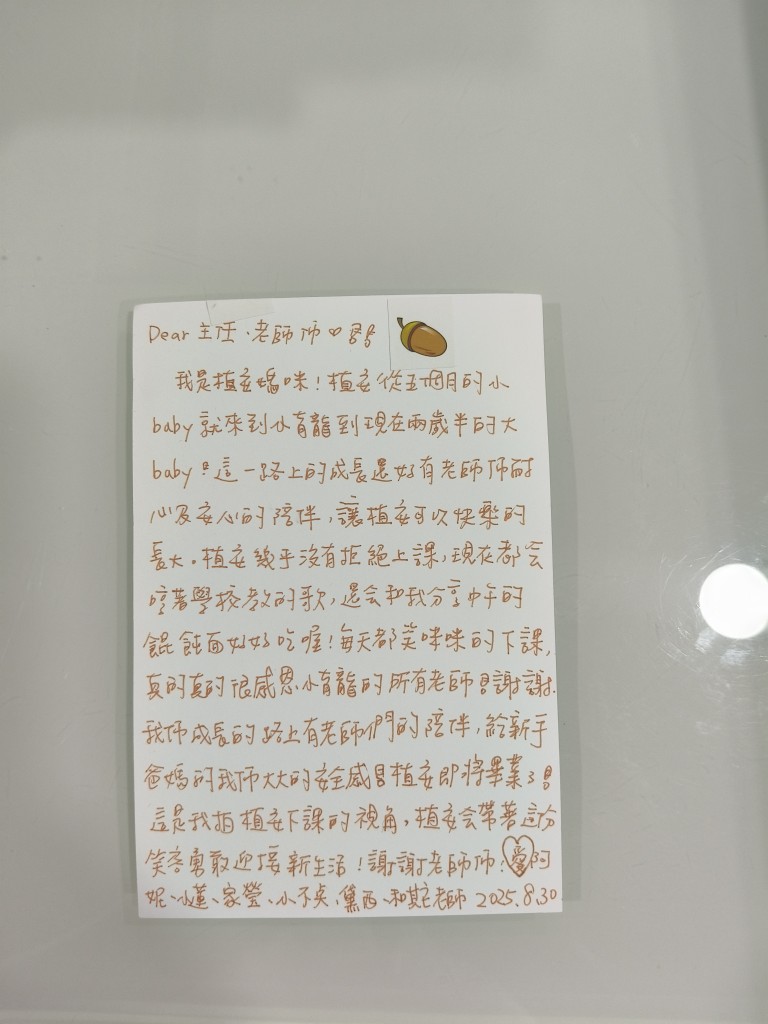 Dear 主任、老師们♡
我是植安媽咪！植安從五個月的小
baby就來到小育龍到現在兩歲半的大
baby！這一路上的成長還好有老師们耐
心及安心的陪伴，讓植安可以快樂的
長大。植安幾乎沒有拒絕上課，現在都会
哼著學校教的歌，還会和我分享中午的
餛飩面好好吃喔！每天都笑咪咪的下課，
真的真的很感恩小育龍的所有老師！謝謝
我们成長的路上有老師們的陪伴，給新手
爸媽的我们大大的安全感！植安即將畢業了！
這是我拍植安下課的視角，植安会帶著這份
笑容勇敢迎接新生活！謝謝老師们！愛阿
妮、小蓮、家瑩、小不点、黛西、和其它老師 2025.8.30